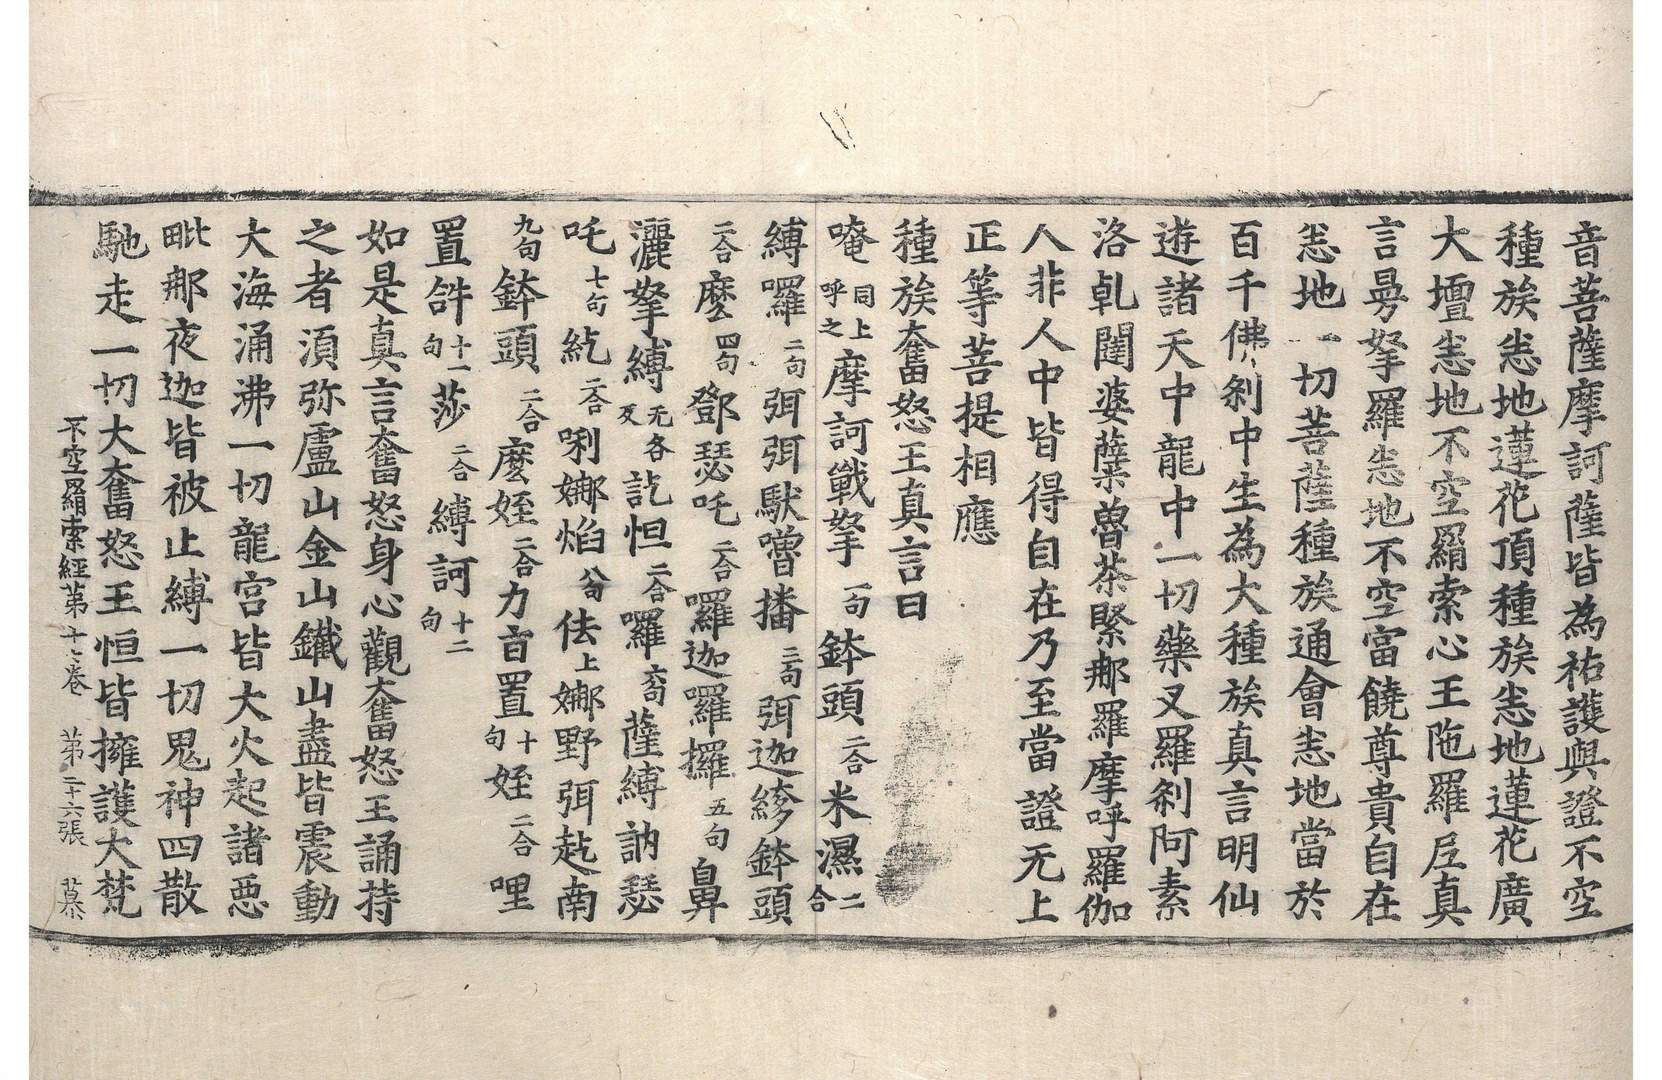 音菩薩摩訶薩皆為祐護與證不空
種族悉地蓮花頂種族悉地蓮花廣
大壇悉地不空羂索心王陁羅尼真
言曼拏羅悉地不空富饒尊貴自在
悉地一切菩薩種族通會悉地當於
百千佛剎中生為大種族真言明仙
遊諸天中龍中一切藥叉羅剎阿素
洛軋闥婆蘗魯荼緊那羅摩呼羅伽
人非人中皆得自在乃至當證无上
正等菩提相應
種族奮怒王真言曰
唵同上呼之摩訶戰拏一句鉢頭二合米濕二合
縛囉二句弭弭馱嚕播三句弭迦䌟鉢頭
二合麼四句鄧瑟吒二合囉迦囉攞五句鼻
灑拏縛无各反訖怛二合囉六句薩縛訥瑟
吒七句紇二合唎娜焰八句佉上娜野弭䞘南
九句鉢頭二合麼姪二合力音置十句姪二合哩
置𤙖十一句莎二合縛訶十二句
如是真言奮怒身心觀奮怒王誦持
之者湏弥盧山金山鐵山盡皆震動
大海涌沸一切龍宮皆大火起諸惡
毗那夜迦皆被止縛一切鬼神四散
馳走一切大奮怒王恒皆擁護大梵
不空羂索經第十七卷　第二十六張　慕